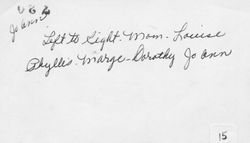 Jo Ann
Left to Right - Mom - Louise
Phyllis - Marge - Dorothy Jo Ann
15